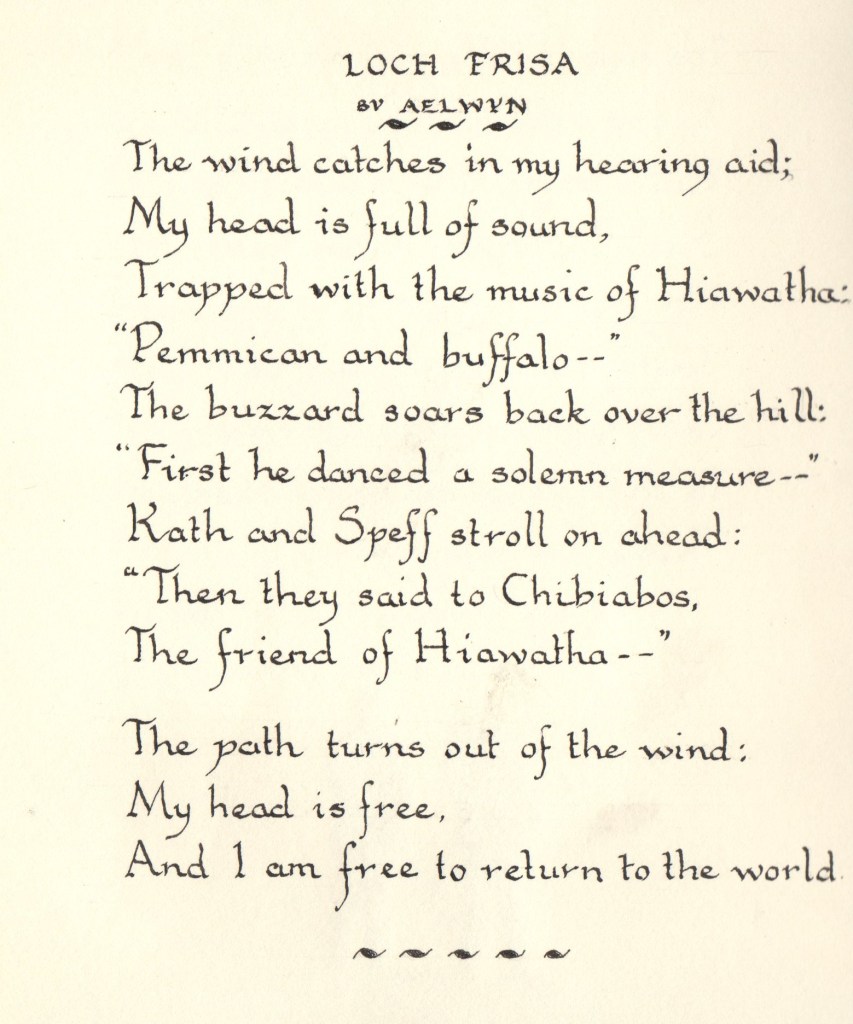 LOCH FRISA
BY AELWYN
The wind catches in my hearing aid;
My head is full of sound,
Trapped with the music of Hiawatha:
"Pemmican and buffalo--"
The buzzard soars back over the hill:
"First he danced a solemn measure--"
Kath and Speff stroll on ahead:
"Then they said to Chibiabos,
The friend of Hiawatha--"
The path turns out of the wind:
My head is free,
And I am free to return to the world.